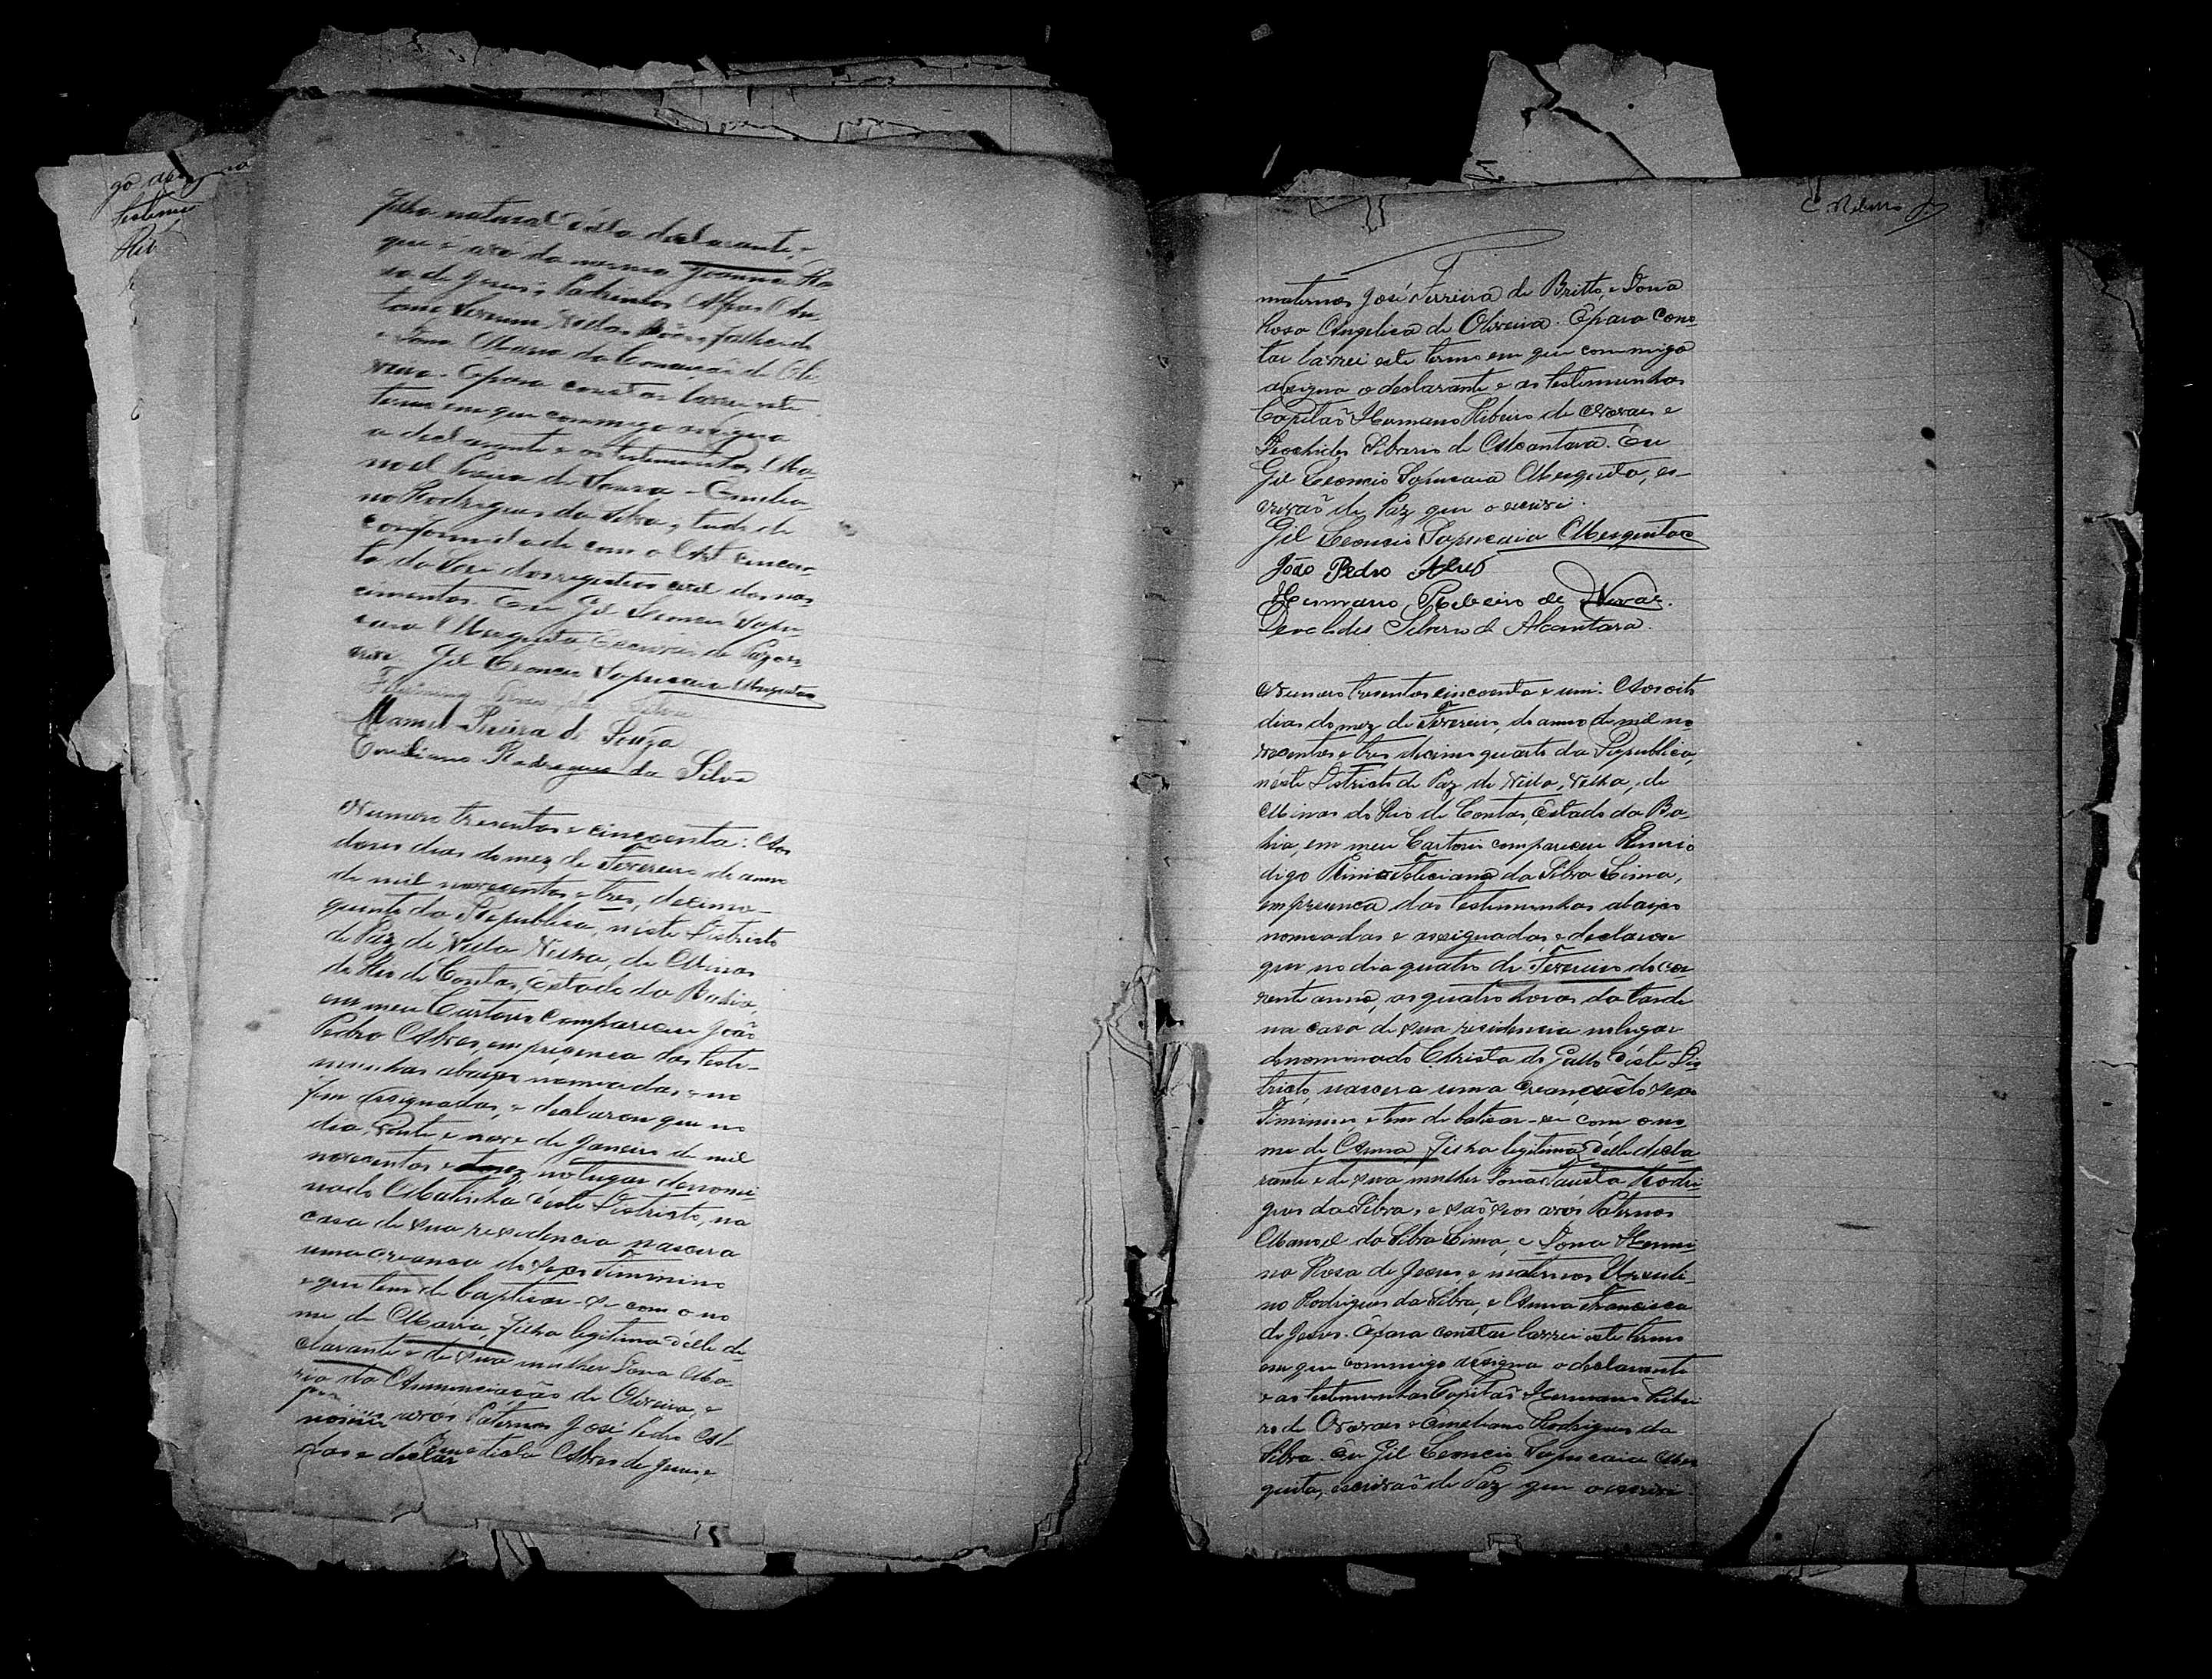 filha natural d'ella declarante, e
que é avó da mesma Joanna Ro
sa de Jesus; Padrinhos
e Dona Maria da Conceição de Oli
veira. E para constar lavrei este
termo em que commigo assigna
a declarante e as testemunhas, Ma
noel Pereira de Souza e Emilia
no Rodrigues da Silva, tudo de
conformidade com o Art. cincoen
ta do dos registros civil dos nas
cimentos. Eu Gil Leoncio Sapu
caia Mesquita, Escrivão de Paz o es
crevi. Gil Leoncio Sapucaia Mesquita
da Silva
Manoel Pereira de Souza
Emiliano Rodrigues da Silva
Numero tresentos e cincoenta: Aos
dias do mez de Fevereiro do anno
de mil novecentos e tres, decimo
quinto da Republica, n'este Districto
de Paz de Villa Velha, de Minas
do Rio de Contas, Estado da Bahia,
em meu Cartorio compareceu João
Pedro Alves, em presença das teste-
munhas abaixo nomeadas, e no
fim assignadas, e declarou que no
dia vinte e nove de Janeiro de mil
novecentos e no lugar denomi
nado Matinha d'este Districto, na
casa de sua residencia nascera
uma creança do sexo Feminino
e que tem de baptisar-se com o no
me de Maria, filha legitima d'elle de
clarante e de sua mulher Dona Ma-
ria da Annunciação de Oliveira, e
avós Paternos José Pedro Al
Alves de Jesus e
C. Ribeiro
maternos José Ferreira de Britto, e Dona
Rosa Angelica de Oliveira. E para cons
tar lavrei este termo em que commigo
assigna o declarante e as testemunhas
Capitaõ Hermano Ribeiro de Novaes e
Deoclides Silverio de Alcantara. Eu
Gil Leoncio Sapucaia Mesquita, es-
crivaõ de Paz que o escrevi.
Gil Leoncio Sapucaia Mesquita
João Pedro Alves
Hermano Ribeiro de Novaes.
Deoclides Silverio de Alcantara.
Numero tresentos cincoenta e um. Aos oito
dias do mez de Fevereiro, do anno de mil no
vecentos e tres decimo quarto da Republica,
n'este Districto de Paz de Villa Velha, de
Minas do Rio de Contas, Estado da Ba
hia, em meu Cartorio compareceu
digo Feliciano da Silva Lima,
em presença das testemunhas abaixo
nomeadas e assignadas, e declarou
que no dia quatro de Fevereiro do cor
rente anno, as quatro horas da tarde
na casa de sua residencia no lugar
denominado Christa do Gallo d'este Dis
tricto, nascera uma creança do sexo
Feminino, e tem de batisar-se com o no
me de Anna filha legitima d'elle decla
rante e de sua mulher Dona Fausta Rodri
gues da Silva, e são seos avós Paternos
Manoel da Silva Lima, e Dona Hermi
na Rosa de Jesus, e maternos
no Rodrigues da Silva, e Anna Francisca
de Jesus. E para constar lavrei este termo
em que commigo assigna o declarante
e as testemunhas Capitaõ Hermano Ribei
ro de Novaes e Emeliano Rodrigues da
Silva. Eu Gil Leoncio Sapucaia Mes
quita, escrivaõ de Paz que o escrevi